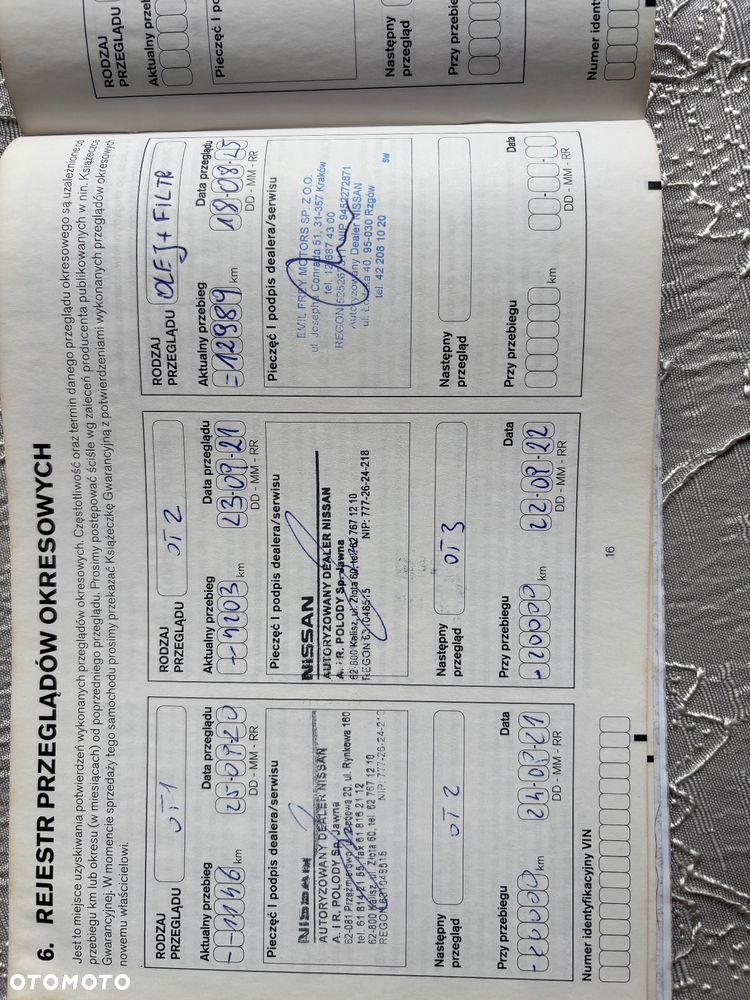 6. REJESTR PRZEGLĄDÓW OKRESOWYCH
Jest to miejsce uzyskiwania potwierdzeń wykonanych przeglądów okresowych. Częstotliwość oraz termin danego przeglądu okresowego są uzależnione od
przebiegu km lub okresu (w miesiącach) od poprzedniego przeglądu. Prosimy postępować ściśle wg zaleceń producenta publikowanych w nin. Książeczce
Gwarancyjnej. W momencie sprzedaży tego samochodu prosimy przekazać Książeczkę Gwarancyjną z potwierdzeniami wykonanych przeglądów okresowych
nowemu właścicielowi.
RODZAJ
PRZEGLĄDU
OT1
Aktualny przebieg
Data przeglądu
--1146 km
DD - MM - RR
Pieczęć I podpis dealera/serwisu
NISSAN
AUTORYZOWANY DEALER NISSAN
A. i R. POLODY Sp. Jawna
20, ul. Rynkowa 160
62-800 Kalisz, ul. Złota 60, tel. 62 767 12 10
REGON 631048515 NIP: 777-26-24-218
Następny
przegląd
OT2
Przy przebiegu
Data
-20000 km
24-09-21
DD - MM - RR
Numer identyfikacyjny VIN
RODZAJ
PRZEGLĄDU
OT2
Aktualny przebieg
Data przeglądu
km
23-09-21
DD - MM - RR
Pieczęć I podpis dealera/serwisu
NISSAN
AUTORYZOWANY DEALER NISSAN
A. i R. POLODY Sp. Jawna
62-800 Kalisz, ul. Złota 60, tel. 62 767 12 10
REGON 631048515 NIP: 777-26-24-218
Następny
przegląd
OT3
Przy przebiegu
Data
-20000 km
22-09-22
DD - MM - RR
16
RODZAJ
PRZEGLĄDU
OLEJ + FILTR
Aktualny przebieg
Data przeglądu
=12989 km
18-08-25
DD - MM - RR
Pieczęć I podpis dealera/serwisu
EMIL FREY MOTORS SP. Z O.O.
ul. Josepha Conrada 51, 31-357 Kraków
tel. 12 687 43 00
REGON NIP 9452272871
Autoryzowany Dealer NISSAN
ul. 40, 95-030 Rzgów
tel. 42 208 10 20
SW
Następny
przegląd
Przy przebiegu
Data
km
DD - MM - RR
RODZAJ
PRZEGLĄDU
Aktualny
Pieczęć I
Następny
przegląd
Przy
Numer
OTOMOTO